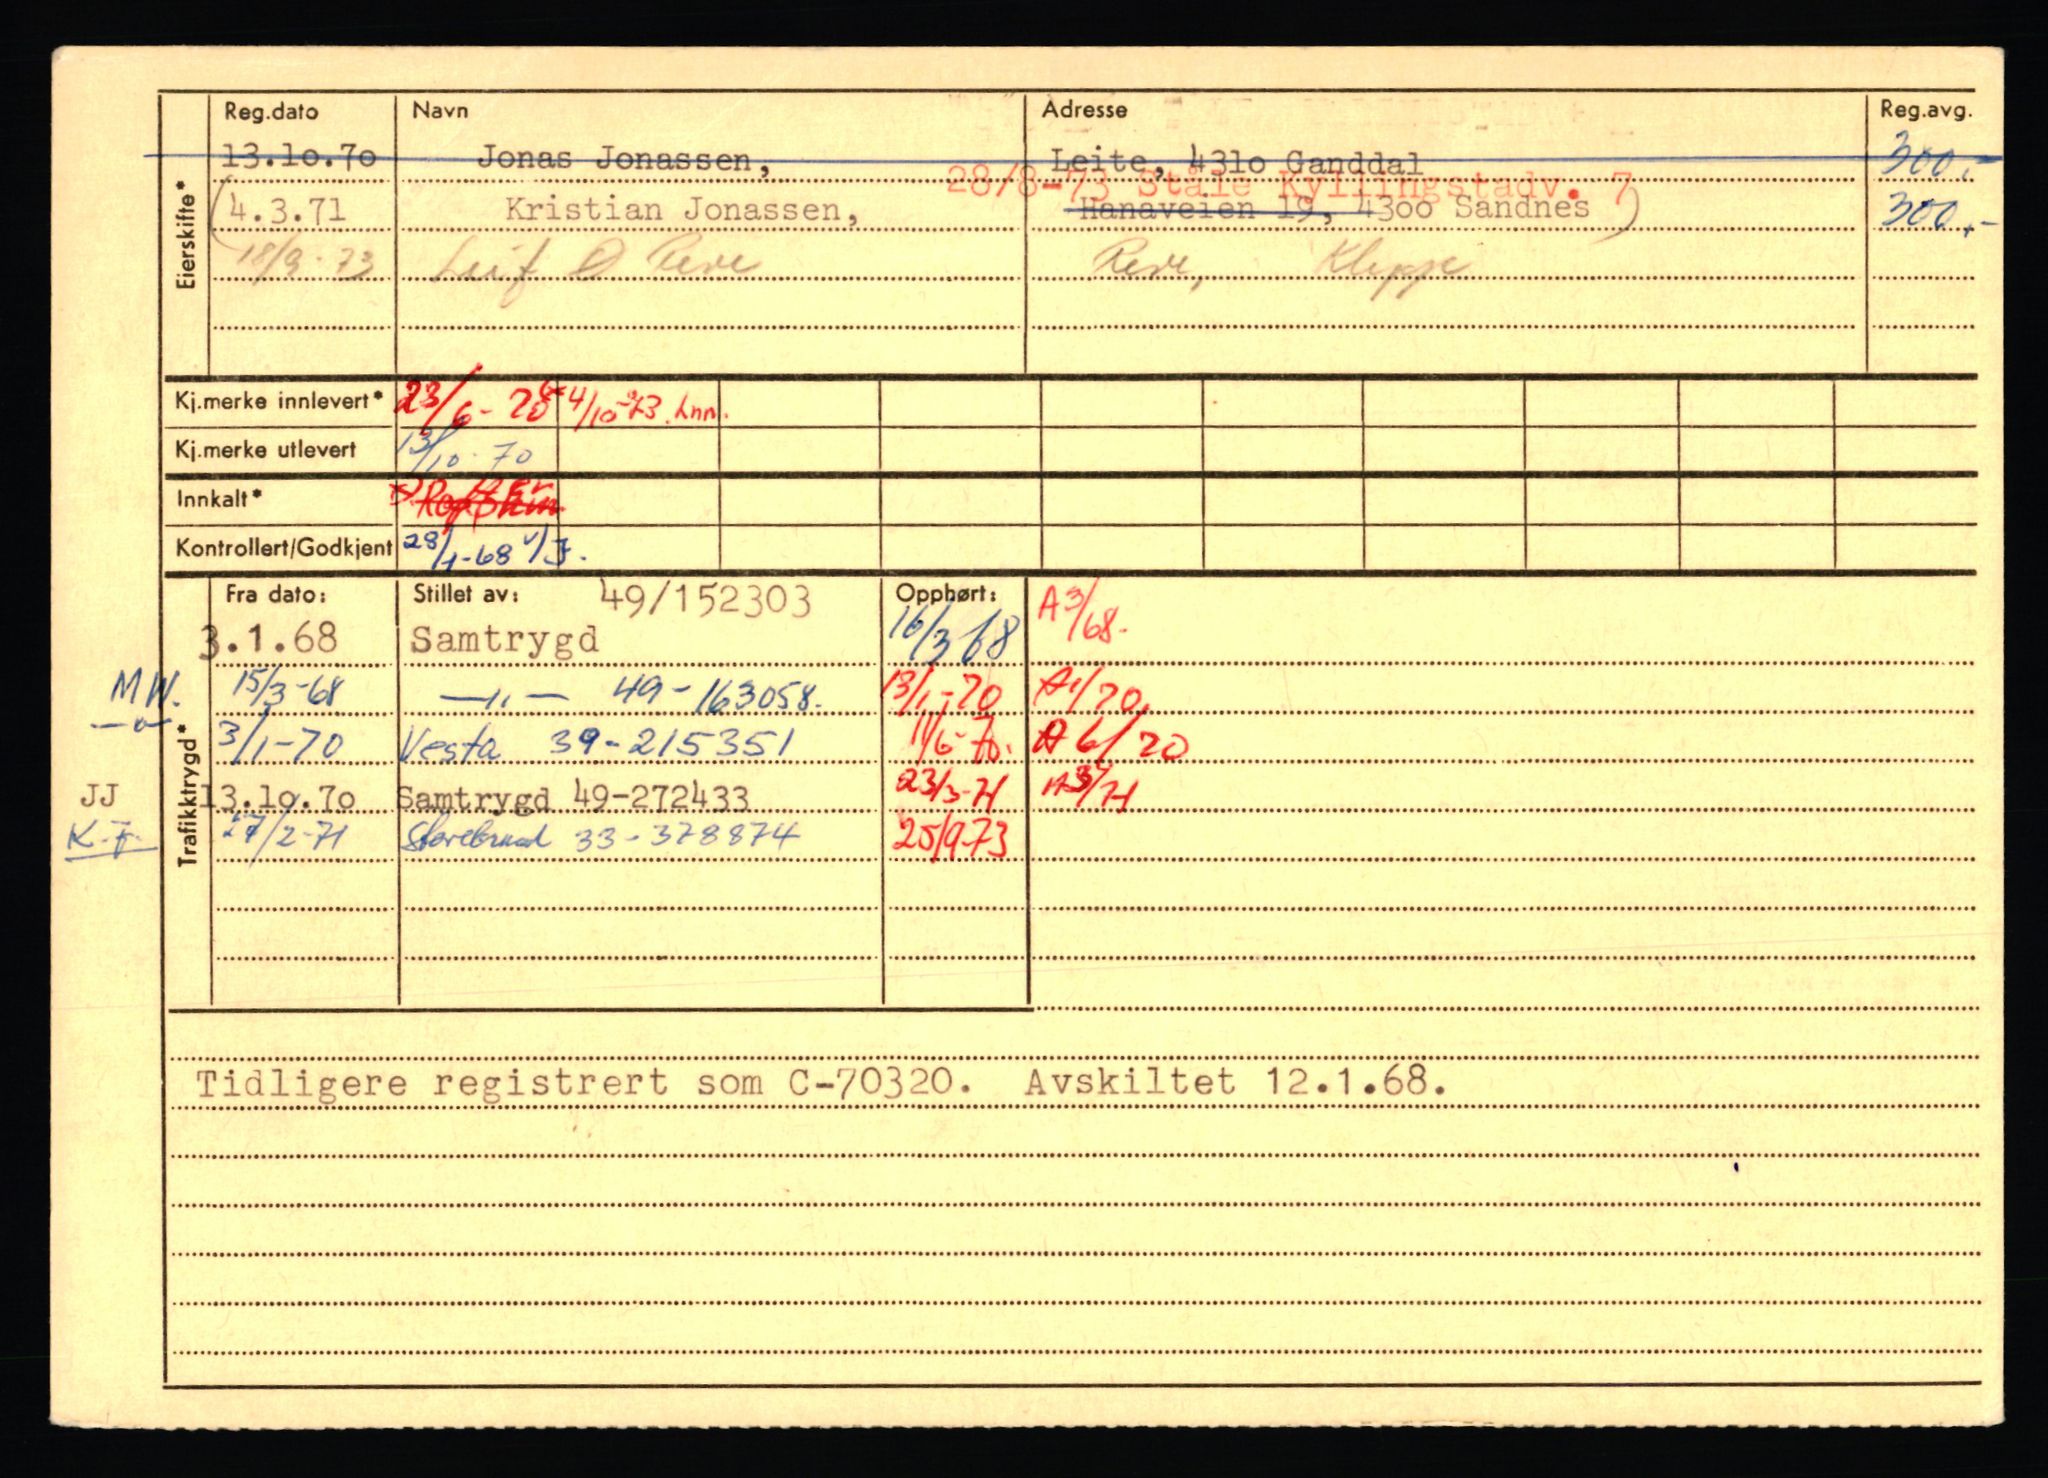 Reg.dato Navn Adresse Reg.avg.
13.10.70 Jonas Jonassen, Leite, 4310 Ganddal 300,-
28/8-73 Ståle Kyllingstadv. 7
4.3.71 Kristian Jonassen, Hanaveien 19, 4300 Sandnes 300,-
18/9-73 Leif O Reve Reve, Kleppe
Eierskifte*
Kj.merke innlevert* 23/6-70 4/10-73. Lnn.
Kj.merke utlevert 13/10-70
Innkalt*
Kontrollert/Godkjent 28/1-68 V/J.
Trafikktrygd*
Fra dato: Stillet av: 49/152303 Opphørt: A 3/68.
3.1.68 Samtrygd 16/3 68
MW. 15/3-68 —"— 49-163058. 13/1-70 A1/70.
—"— 3/1-70 Vesta 39-215351 11/6-70. A 6/70
JJ 13.10.70 Samtrygd 49-272433 23/3-71 A3/71
K.F. 27/2-71 Storebrand 33-378874 25/9-73
Tidligere registrert som C-70320. Avskiltet 12.1.68.